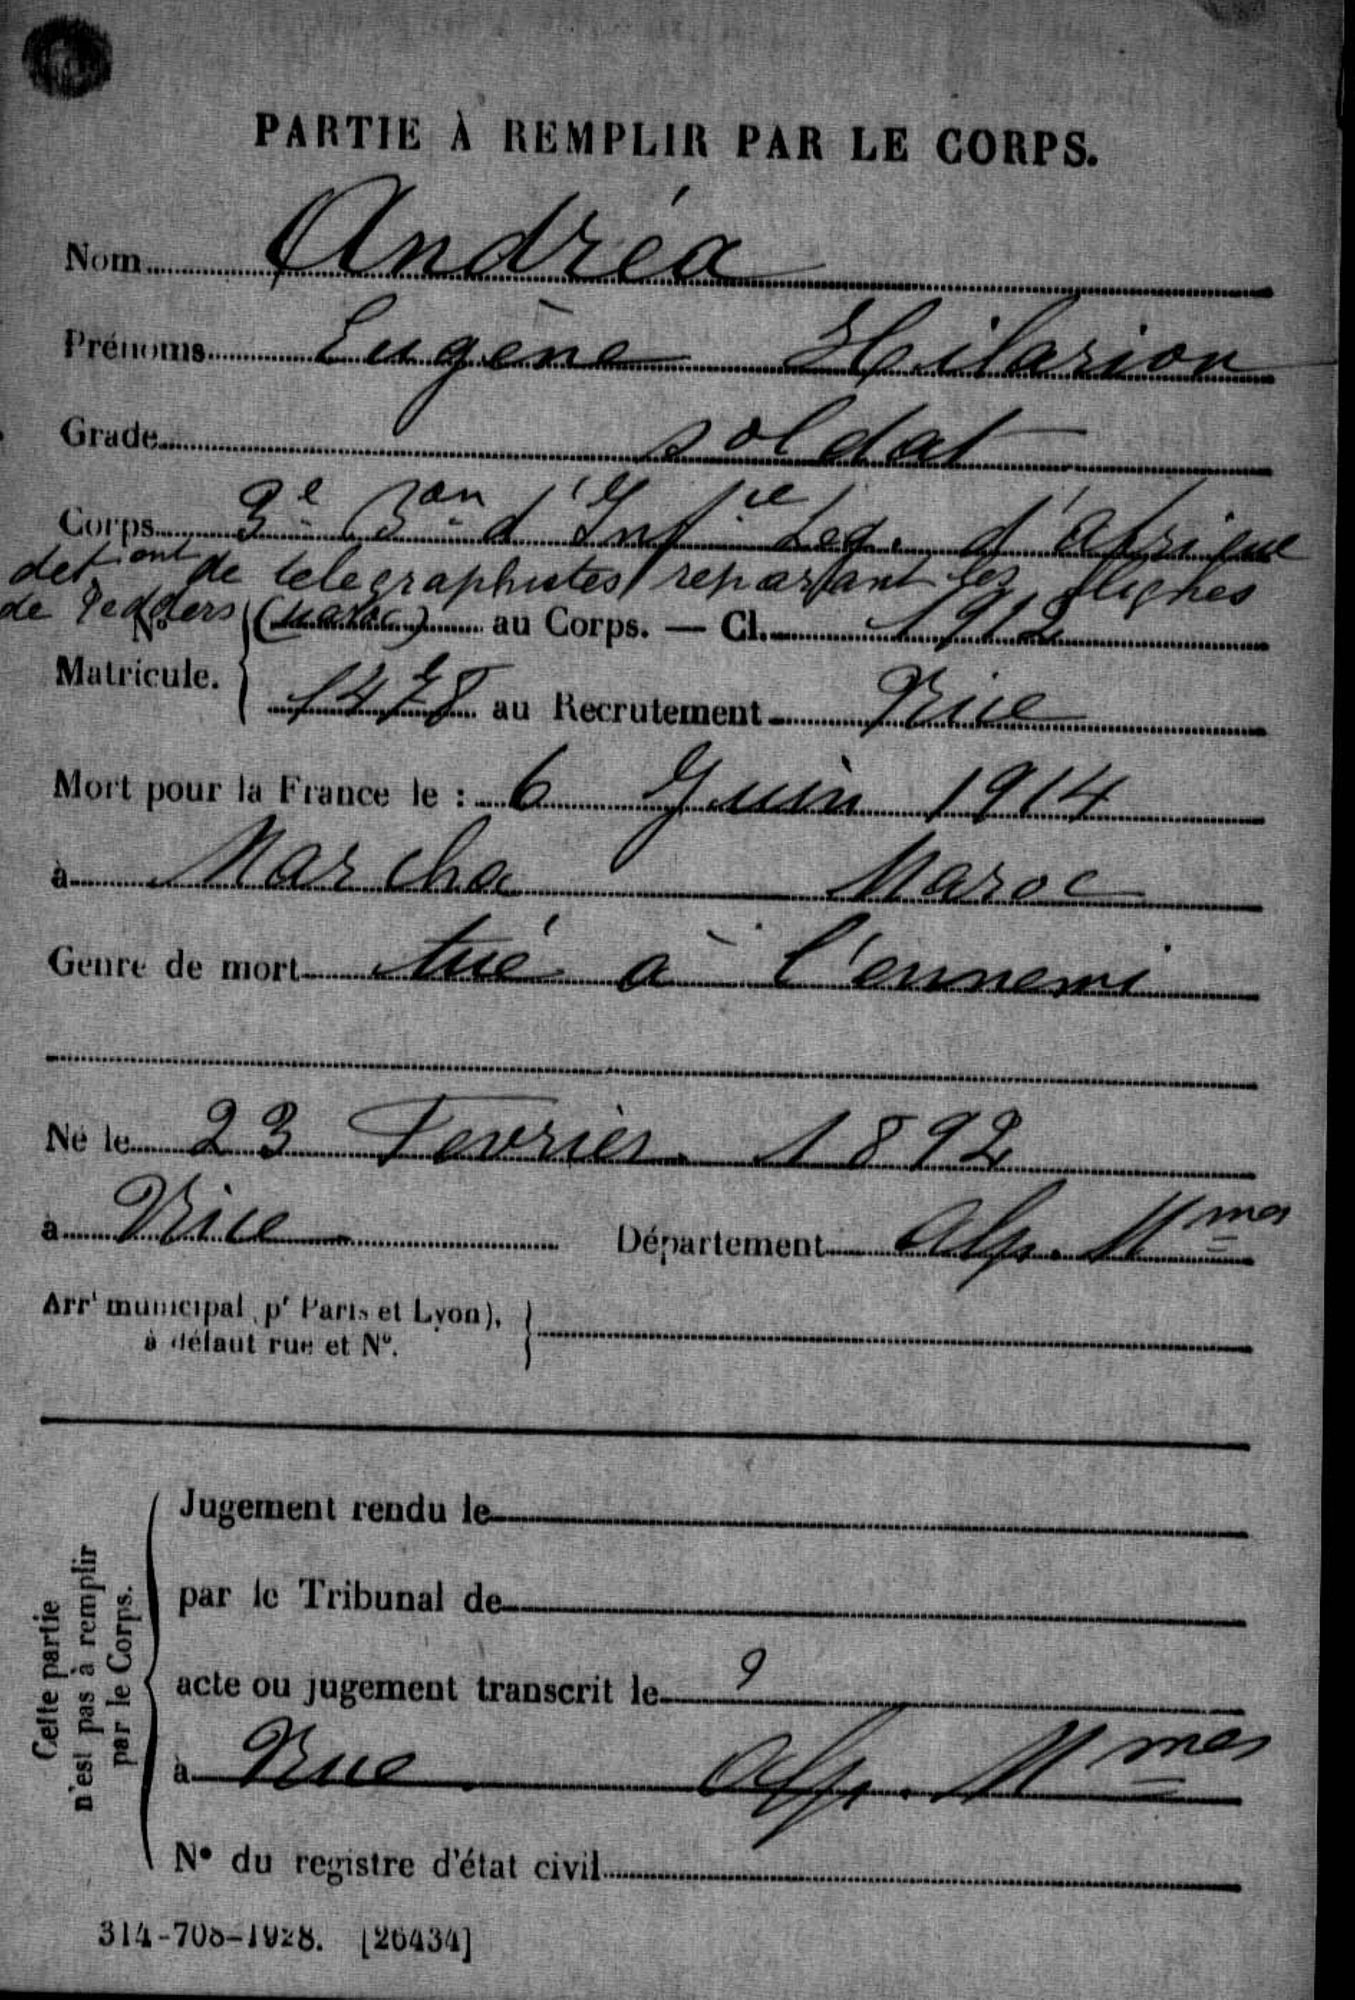 PARTIE À REMPLIR PAR LE CORPS.
Nom Andréa
Prénoms Eugène Hilarion
Grade soldat
Corps 3e Bon d'Infie Leg. d'Afrique
detiont de telegraphistes reparant les lignes
de Tedders (Maroc)
No au Corps. — Cl. 1912
Matricule. 1478 au Recrutement Nice
Mort pour la France le : 6 Juin 1914
à Marcha Maroc
Genre de mort tué à l'ennemi
Né le 23 Fevrier 1892
à Nice Département Alp. Mmes
Arrt municipal (pr Paris et Lyon),
à défaut rue et No.
Cette partie
n'est pas à remplir
par le Corps.
Jugement rendu le
par le Tribunal de
acte ou jugement transcrit le 9
à Nice Alp. Mmes
No du registre d'état civil
314-708-1928. [26434]